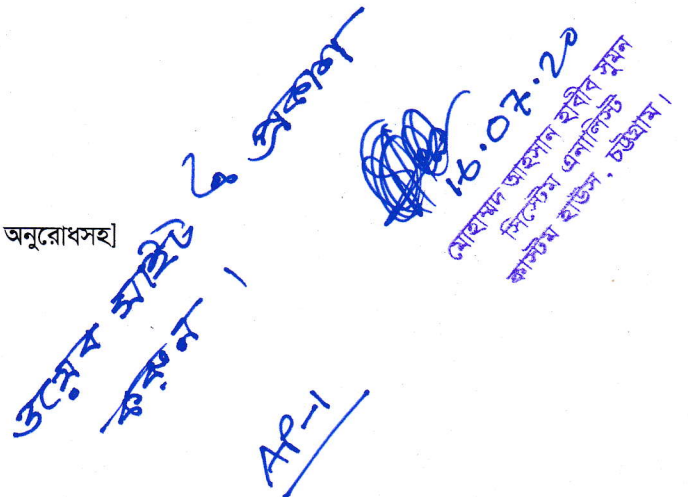 অনুরোধসহ]
ওয়েব সাইটে প্রকাশ
করুন ।
AP-1
16.07.20
মোহাম্মদ আহসান হাবীব সুমন
সিস্টেম এনালিস্ট
কাস্টম হাউস, চট্টগ্রাম ।